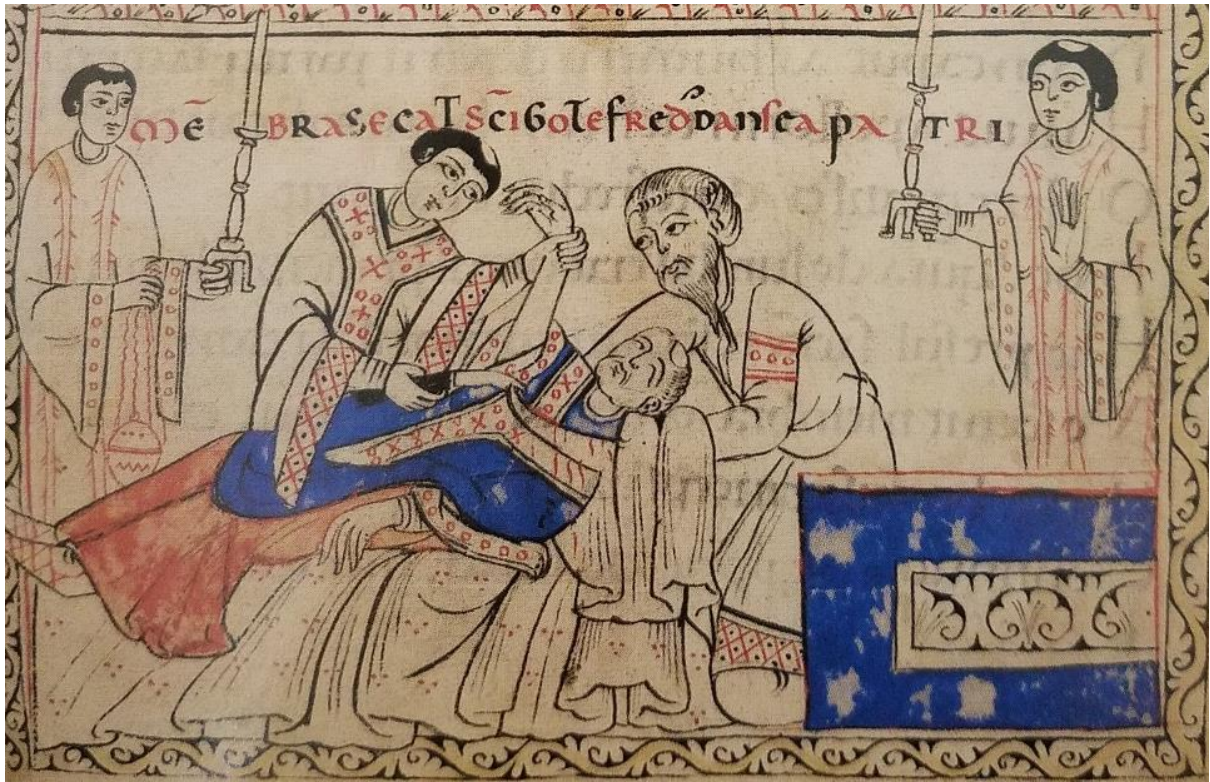 MĒ BRASECAT SC̄I GOTEFREDꝰ DANSEA PATRI